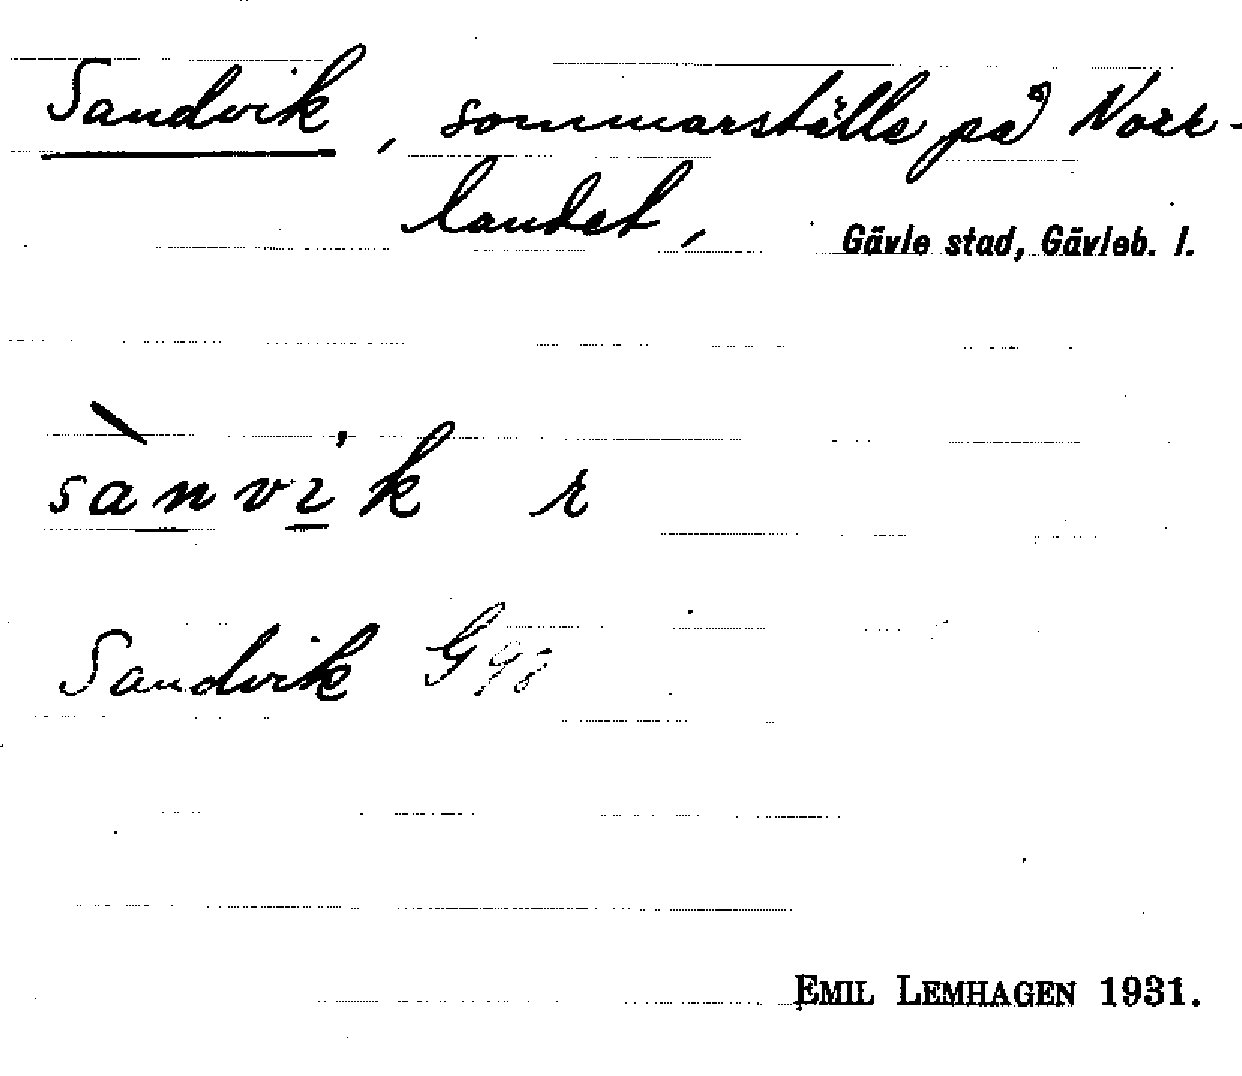 Sandvik, sommarställe på Norr-
landet, Gävle stad, Gävleb. l.
sànvi̠k r
Sandvik G98
EMIL LEMHAGEN 1931.